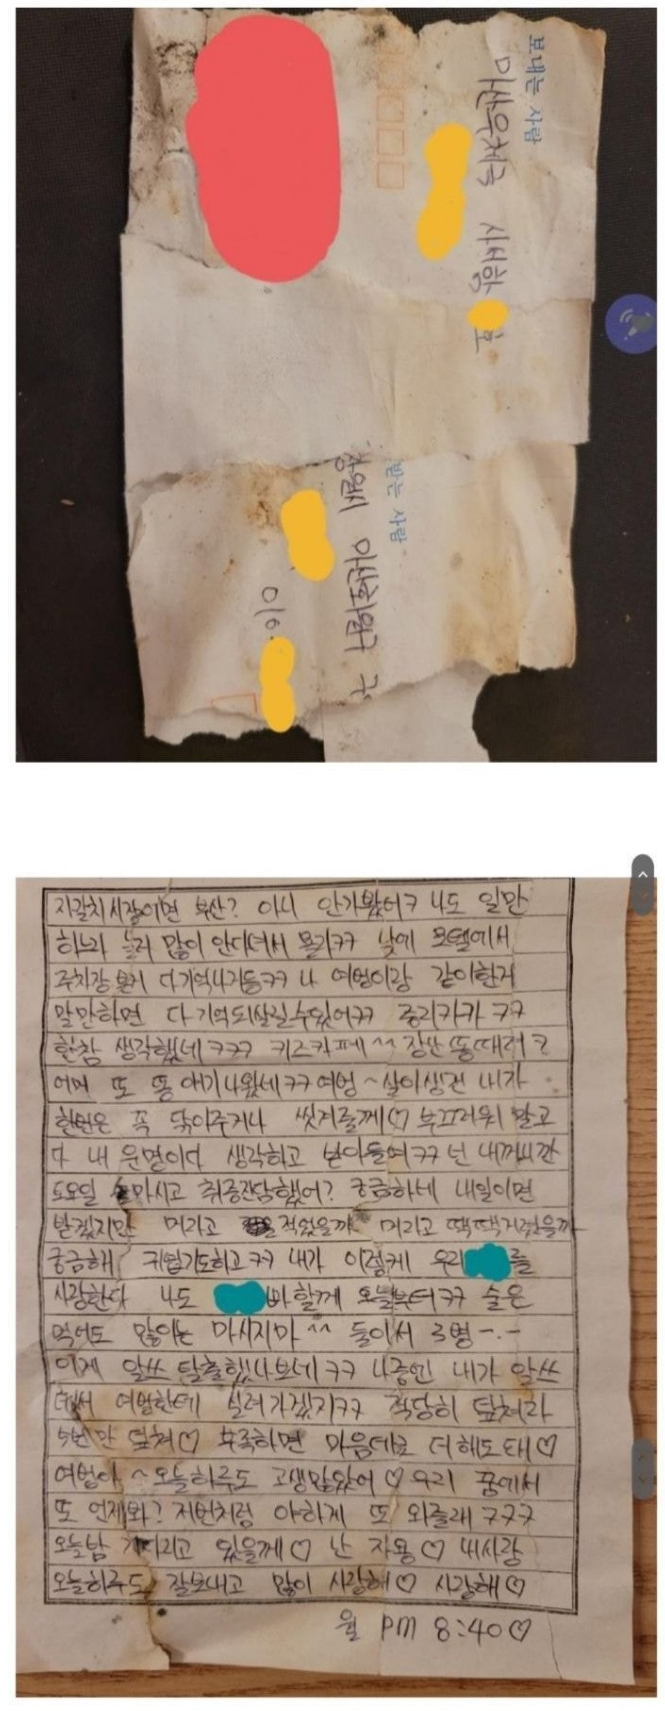 보내는 사람
마산우체국 사서함 호
받는 사람
창원시 마산회원구 구
이
자갈치시장이면 부산? 아니 안가봤어ㅋ 나도 일만
하느라 놀러 많이 안다녀서 몰라ㅋㅋ 낮에 모텔에서
주차장 다기억나거등ㅋㅋ 나 여벙이랑 같이한거
말만하면 다 기억되살릴수있어ㅋㅋ ㅋㅋ
한참 생각했네ㅋㅋㅋ 키즈카페^^ 장난 똥때려?
어머 또 똥 얘기나왔네ㅋㅋ여벙~살이생전 내가
한번은 꼭 닦아주거나 씻겨줄께♡ 부끄러워 말고
다 내 운명이다 생각하고 받아들여ㅋㅋ넌 내꺼니깐
토요일 마시고 취중진담했어? 궁금하네 내일이면
받겠지만 머라고 적었을까 머라고
궁금해 귀엽기도하고ㅋㅋ 내가 이렇게 우리 를
사랑한다 나도 바 할께 오늘부터ㅋㅋ 술은
먹어도 많이는 마시지마^^ 둘이서 3병-.-
이게 알쓰 탈출했나보네ㅋㅋ 나중엔 내가 알쓰
되서 여벙한테 실려가겠지ㅋㅋ 적당히 닥쳐라
5번만 닥쳐♡ 부족하면 마음데로 더해도돼♡
여벙아~오늘하루도 고생많았어♡우리 꿈에서
또 언제봐? 저번처럼 야하게 또 와줄래ㅋㅋㅋ
오늘밤 기다리고 있을께♡ 난 자용♡ 내사랑
오늘하루도 잘보내고 많이 사랑해♡ 사랑해♡
월 pm 8:40♡